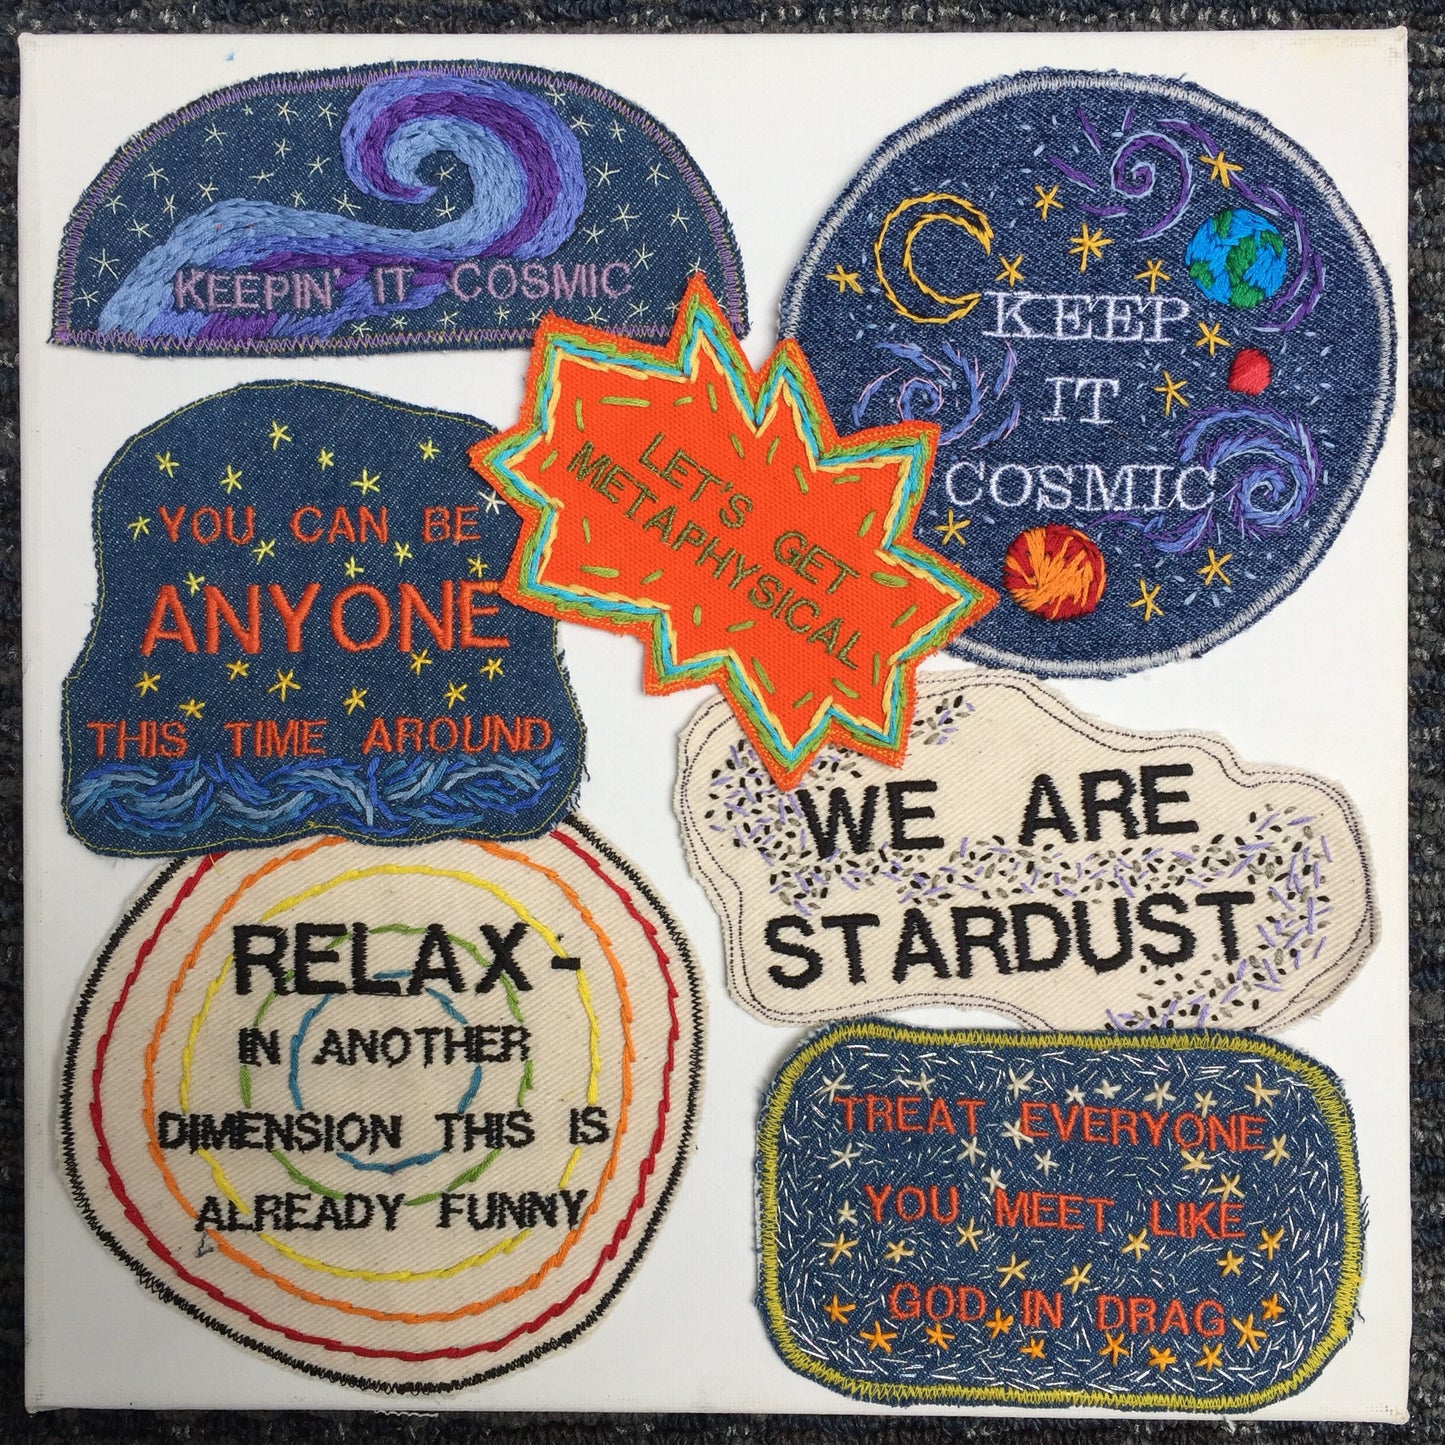 KEEPIN' IT COSMIC
KEEP
IT
COSMIC
LET'S GET
METAPHYSICAL
YOU CAN BE
ANYONE
THIS TIME AROUND
WE ARE
STARDUST
RELAX-
IN ANOTHER
DIMENSION THIS IS
ALREADY FUNNY
TREAT EVERYONE
YOU MEET LIKE
GOD IN DRAG